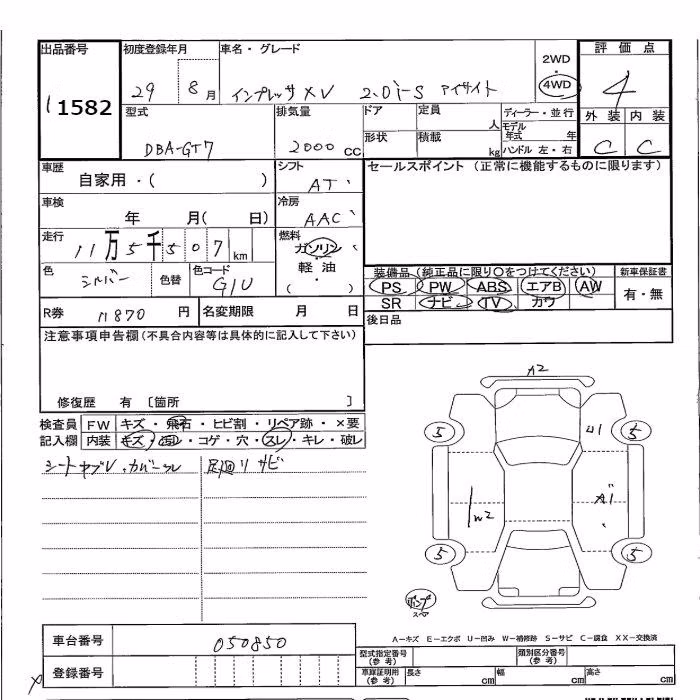 出品番号 初度登録年月 車名・グレード 2WD 評価点
1582 29 8月 インプレッサXV 2.0i-S アイサイト 4WD 4
型式 排気量 ドア 定員 人 ディーラー・並行 外装 内装
DBA-GT7 2000 CC 形状 積載 kg モデル年式 年 ハンドル 左・右 C C
車歴 自家用・( ) シフト AT セールスポイント(正常に機能するものに限ります)
車検 年 月( 日) 冷房 AAC
走行 11万5千507km 燃料 ガソリン
色 シルバー 色替 色コード G1U 軽油 ・ ( )
装備品(純正品に限り○をつけてください) 新車保証書
PS PW ABS エアB AW 有・無
SR ナビ TV カワ
R券 11870 円 名変期限 月 日 後日品
注意事項申告欄(不具合内容等は具体的に記入して下さい)
修復歴 有 [箇所 ]
検査員 FW キズ・飛石・ヒビ割・リペア跡・×要
記入欄 内装 キズ・汚レ・コゲ・穴・スレ・キレ・破レ
シートヤブレ、カバー 足廻リサビ
A2
5 U1 5
W2 A1
5 5
テンプ
スペア
A-キズ E-エクボ U-凹み W-補修跡 S-サビ C-腐食 XX-交換済
車台番号 050850
型式指定番号(参考) 類別区分番号(参考)
登録番号 車庫証明用(参考) 長さ cm 幅 cm 高さ cm